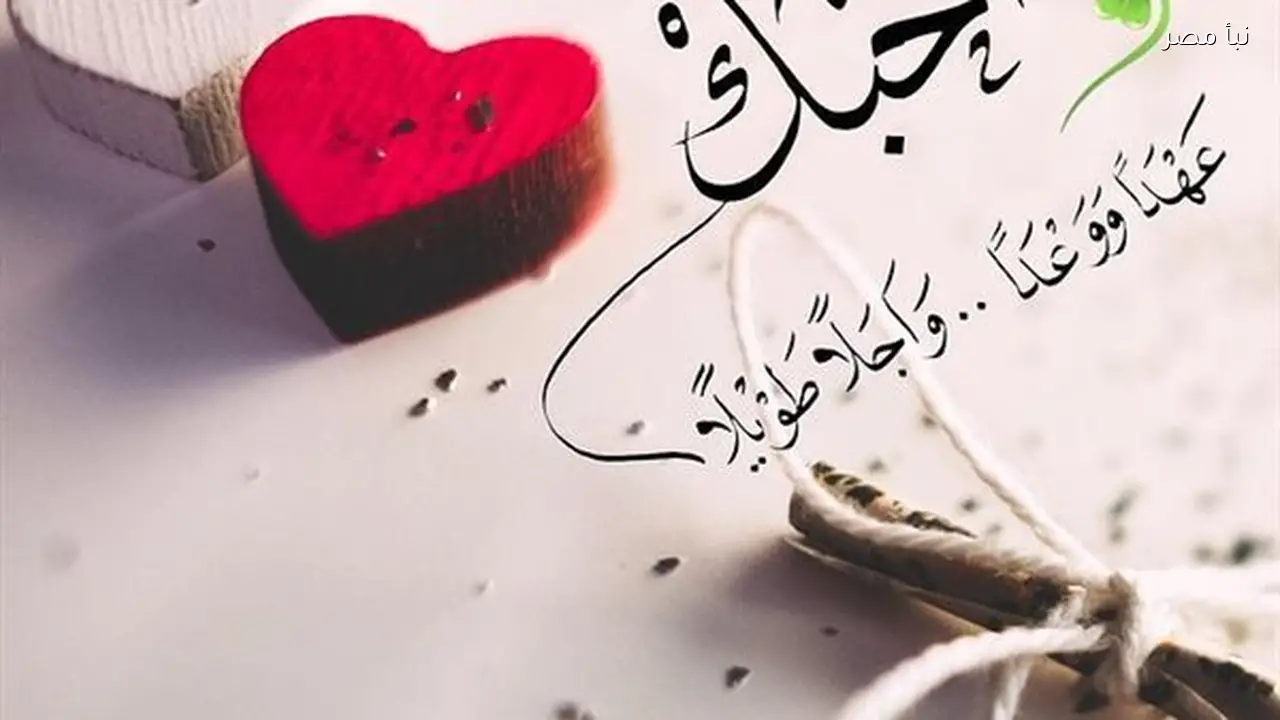 نبأ مصر
أحبك
عَهْدَاً وَوَعْدَاً .. وَأَجَلاً طَوْيْلاً